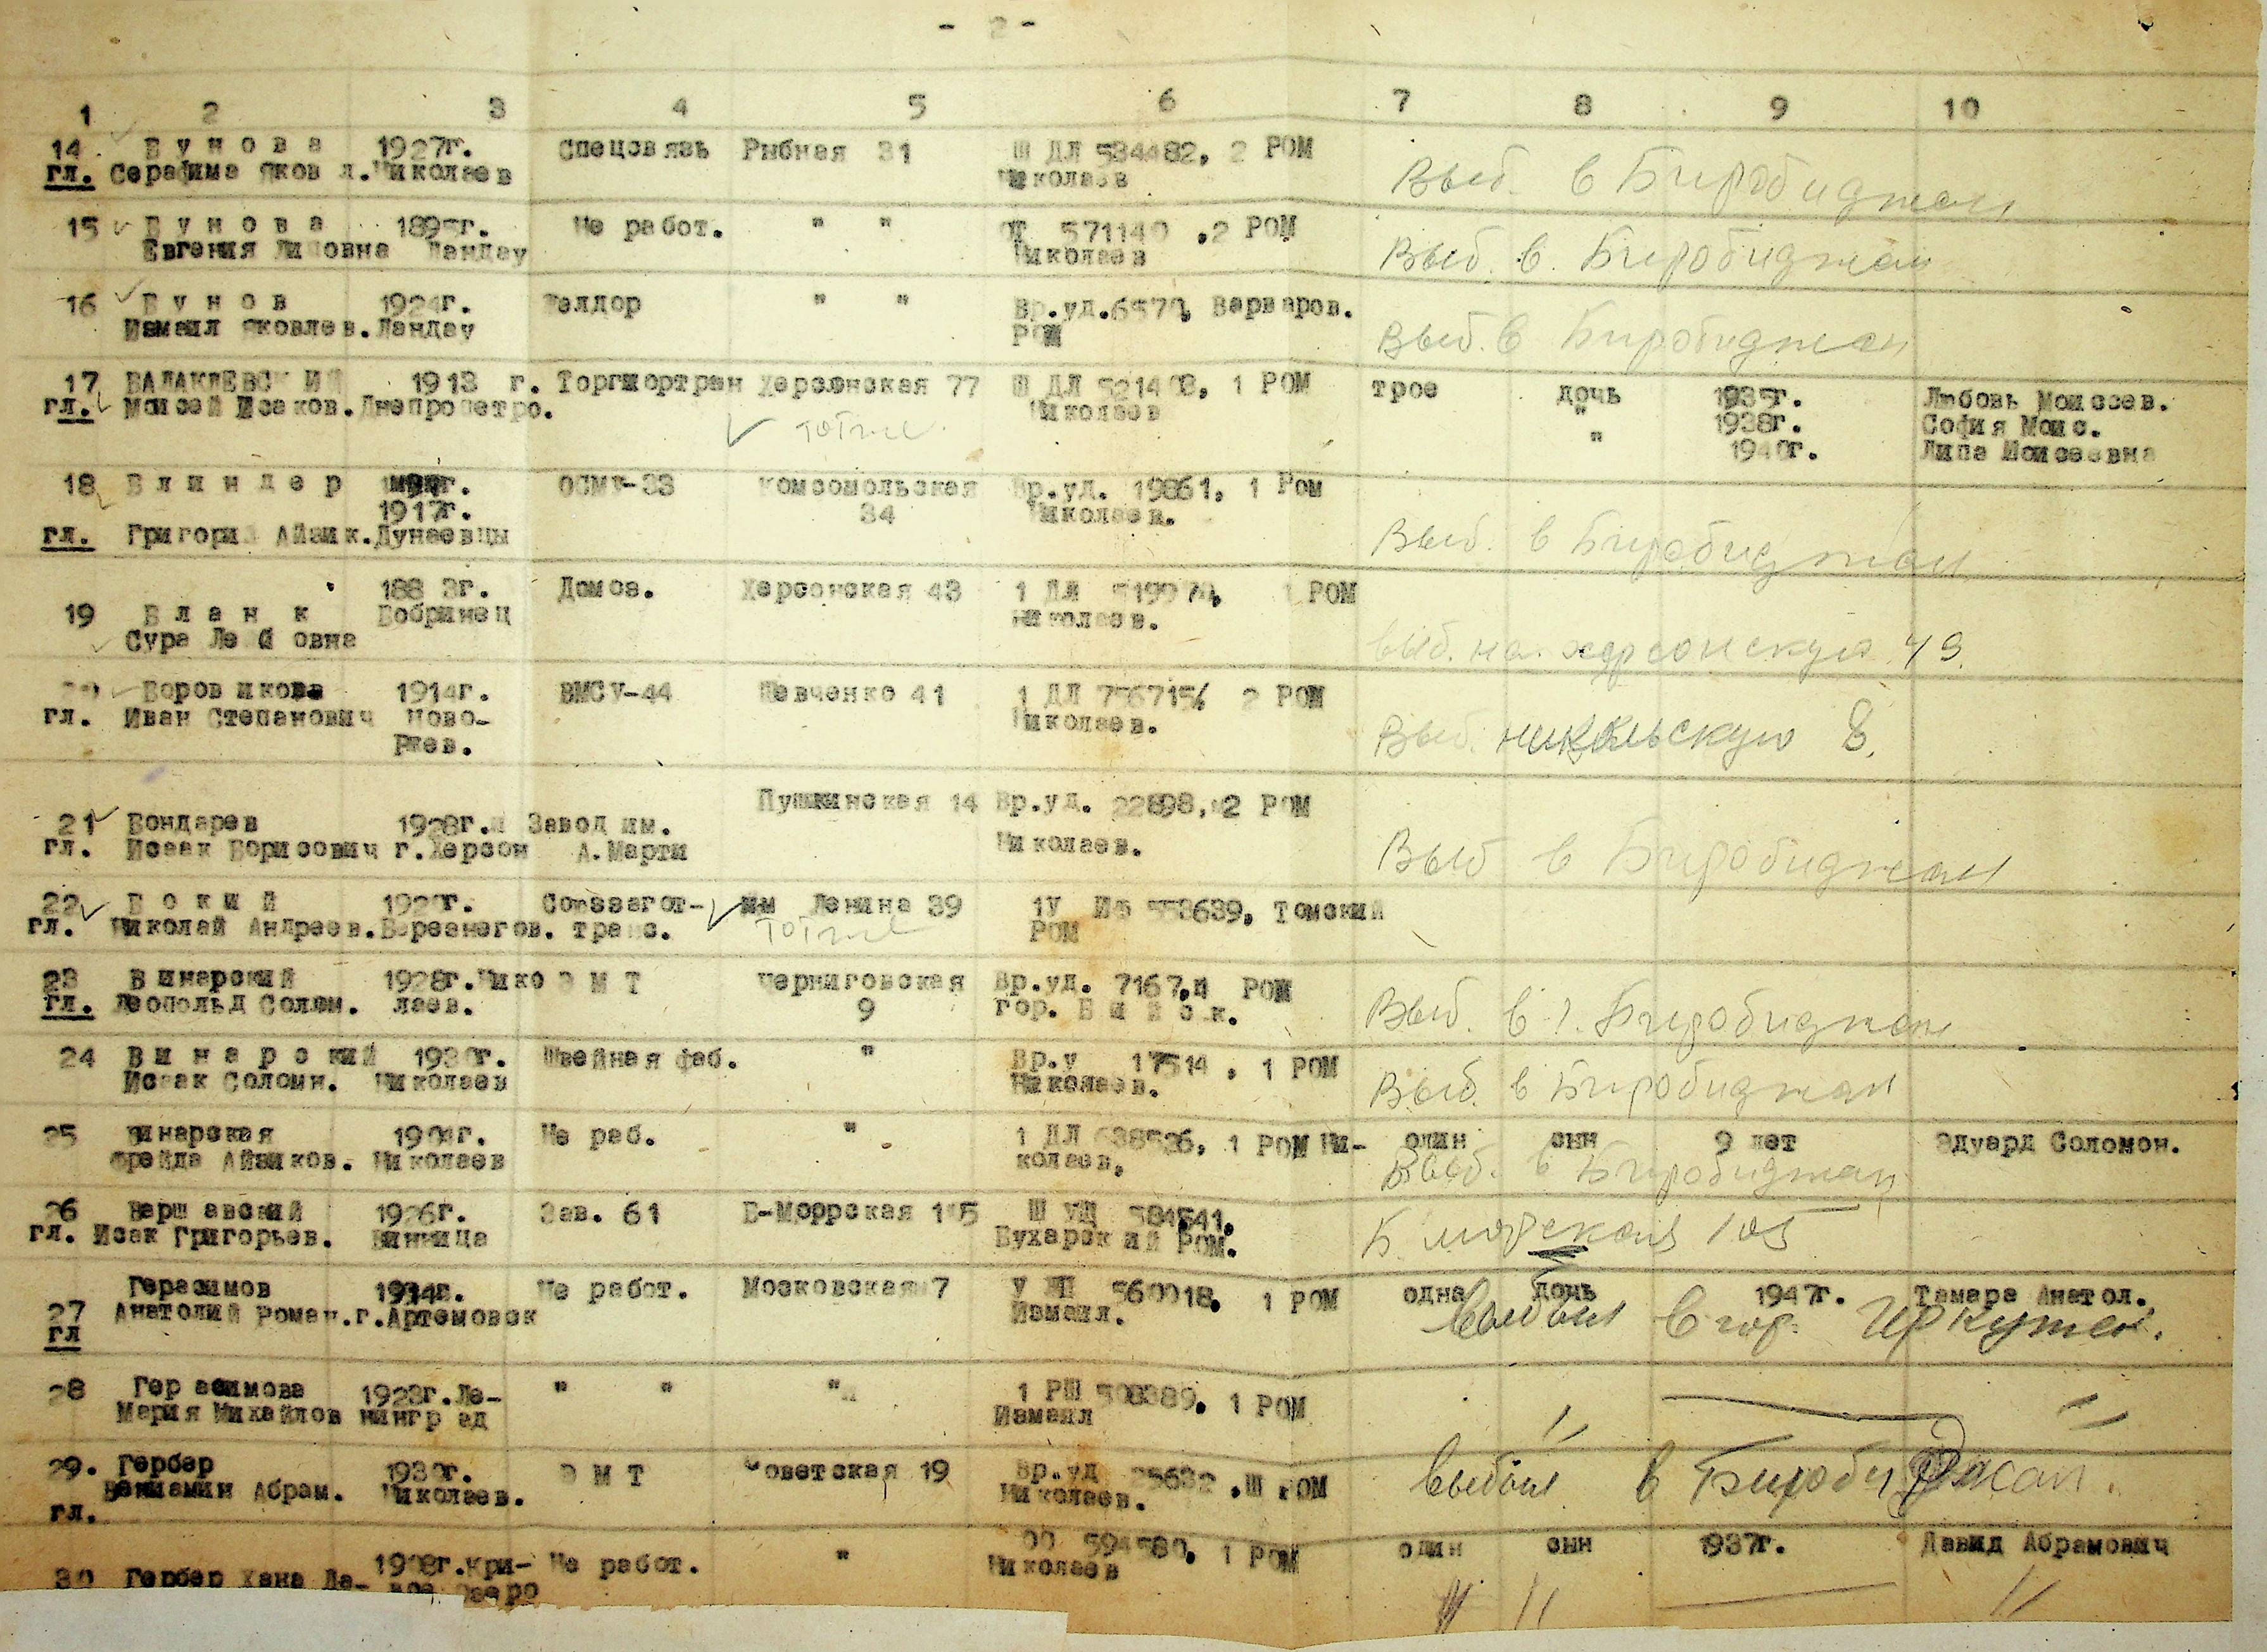 - 2 -
1 2 3 4 5 6 7 8 9 10
14 Бунова 1927г. Спецсвязь Рыбная 31 Ш ДЛ 534482, 2 РОМ
гл. Серафима Яков л. Николаев Николаев
Выб. в Биробиджан
15 Бунова 1895г. Не работ. " " 571140 .2 РОМ
Евгения Липовна Ландау Николаев
Выб. в. Биробиджан
16 Бунов 1924г. Желдор " " Вр.уд.6570, Варваров.
Измаил Яковлев. Ландау РОМ
Выб. в Биробиджан
17 БАЛАКЛЕВСКИЙ 1913 г. Торгмортран Херсонская 77 Ш ДЛ 1 РОМ трое дочь 1935г. Любовь Моисеев.
гл. Моисей Исаков. Днепропетро. Николаев " 1938г. София Моис.
" 1940г. Липа Моисеевна
18 Блиндер ОСМЧ-33 Комсомольская Вр.уд. 19861, 1 Ром
1917г. 34 Николаев.
гл. Григорий Айзик. Дунаевцы
Выб. в Биробиджан
188 3г. Домоз. Херсонская 43 1 ДЛ 1 РОМ
19 Бланк Бобринец Николаев.
Сура Лейбовна
выб. на херсонскую 49.
Боровикова 1914г. ВМСУ-44 Шевченко 41 1 ДЛ 2 РОМ
гл. Иван Степанович Ново- Николаев.
Ржев.
Выб. никольскую 8.
Пушкинская 14 Вр.уд. 22898, 2 РОМ
21 Бондарев 1928г. Завод им.
гл. Исаак Борисович г.Херсон А.Марти Николаев.
Выб в Биробиджан
22 Бокий Союззагот- им Ленина 39 1У 553639, Томский
гл. Николай Андреев. транс. РОМ
23 Винарский 1928г. Нико Э М Т Черниговская Вр.уд. 7167, РОМ
гл. Леопольд Солом. лаев. 9 гор. Бийск.
Выб. в г. Биробиджан
24 Винарский 1930г. Швейная фаб. " Вр.у 17514 , 1 РОМ
Исаак Соломн. Николаев Николаев.
Выб. в Биробиджан
25 Винарская 1904г. Не раб. " 1 ДЛ 638526, 1 РОМ Ни- один сын 9 лет Эдуард Соломон.
Фрейда Айзиков. Николаев колаев,
Выб. в Биробиджан
26 Варшавский 1926г. Зав. 61 Б-Моррская Ш 584541,
гл. Исак Григорьев. Винница Бухарский РОМ.
Б. морская 105
Герасимов 1914г. Не работ. Московская 7 У 560018, 1 РОМ одна дочь 1947г. Тамара Анатол.
27 Анатолий Роман. г.Артемовск Измаил.
гл
выбыл в гор. Иркутск.
28 Герасимова 1923г. Ле- " " " 1 РШ 508389, 1 РОМ
Мария Михайлов нинград Измаил
// //
29. Гербер 1930г. Э М Т Советская 19 Вр.уд 25632 .Ш РОМ
Вениамин Абрам. Николаев. Николаев.
гл.
выбыл в Биробиджан.
1908г.Кри- Не работ. " 00 594580, 1 РОМ один сын 1937г. Давид Абрамович
30 Гербер Хана Ле- вое Озеро Николаев
// // //